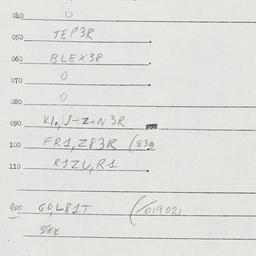 040 0
050 TEP3R
060 BLEX3R
070 0
080 0
090 K1.,J-Z+N3R
100 FR1,Z83R (839
110 R1ZU,R1
900 GO,L81T (/019021